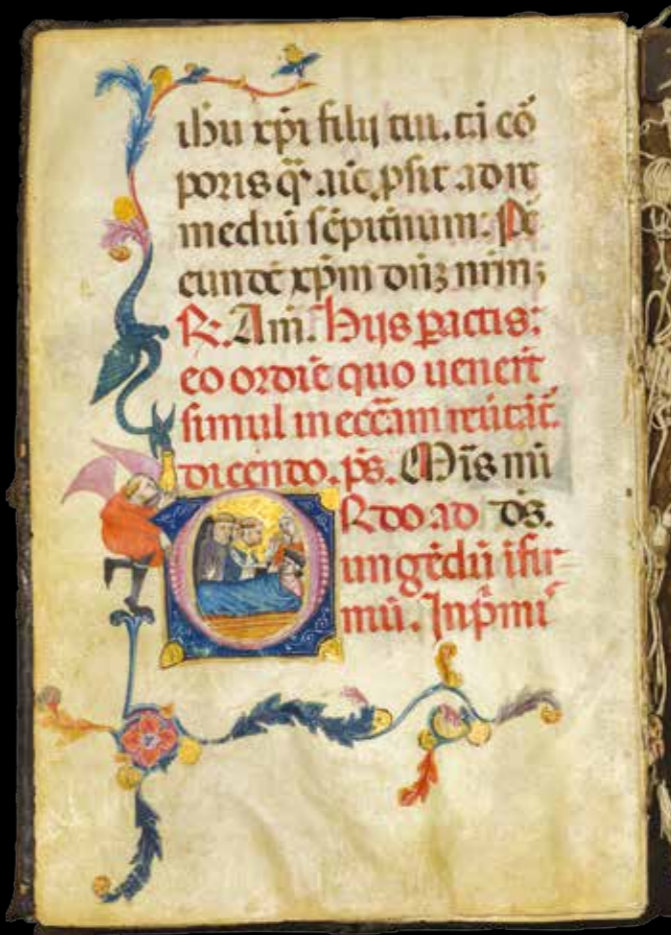 ihu xpi filij tui. tā cō
poris q̄ aīe, p̄sit ad re
mediū sēpit̄num: Pe
eundē xp̄m dn̄ȝ nr̄mȝ
R. Am̄. Hijs pactis:
eo ordīe quo uener̄t
simul in ecc̄am
dicendo. ps. Mis̄ mi
ORdo ad d̄s.
ungēdū īfir
mū. Inp̄mi